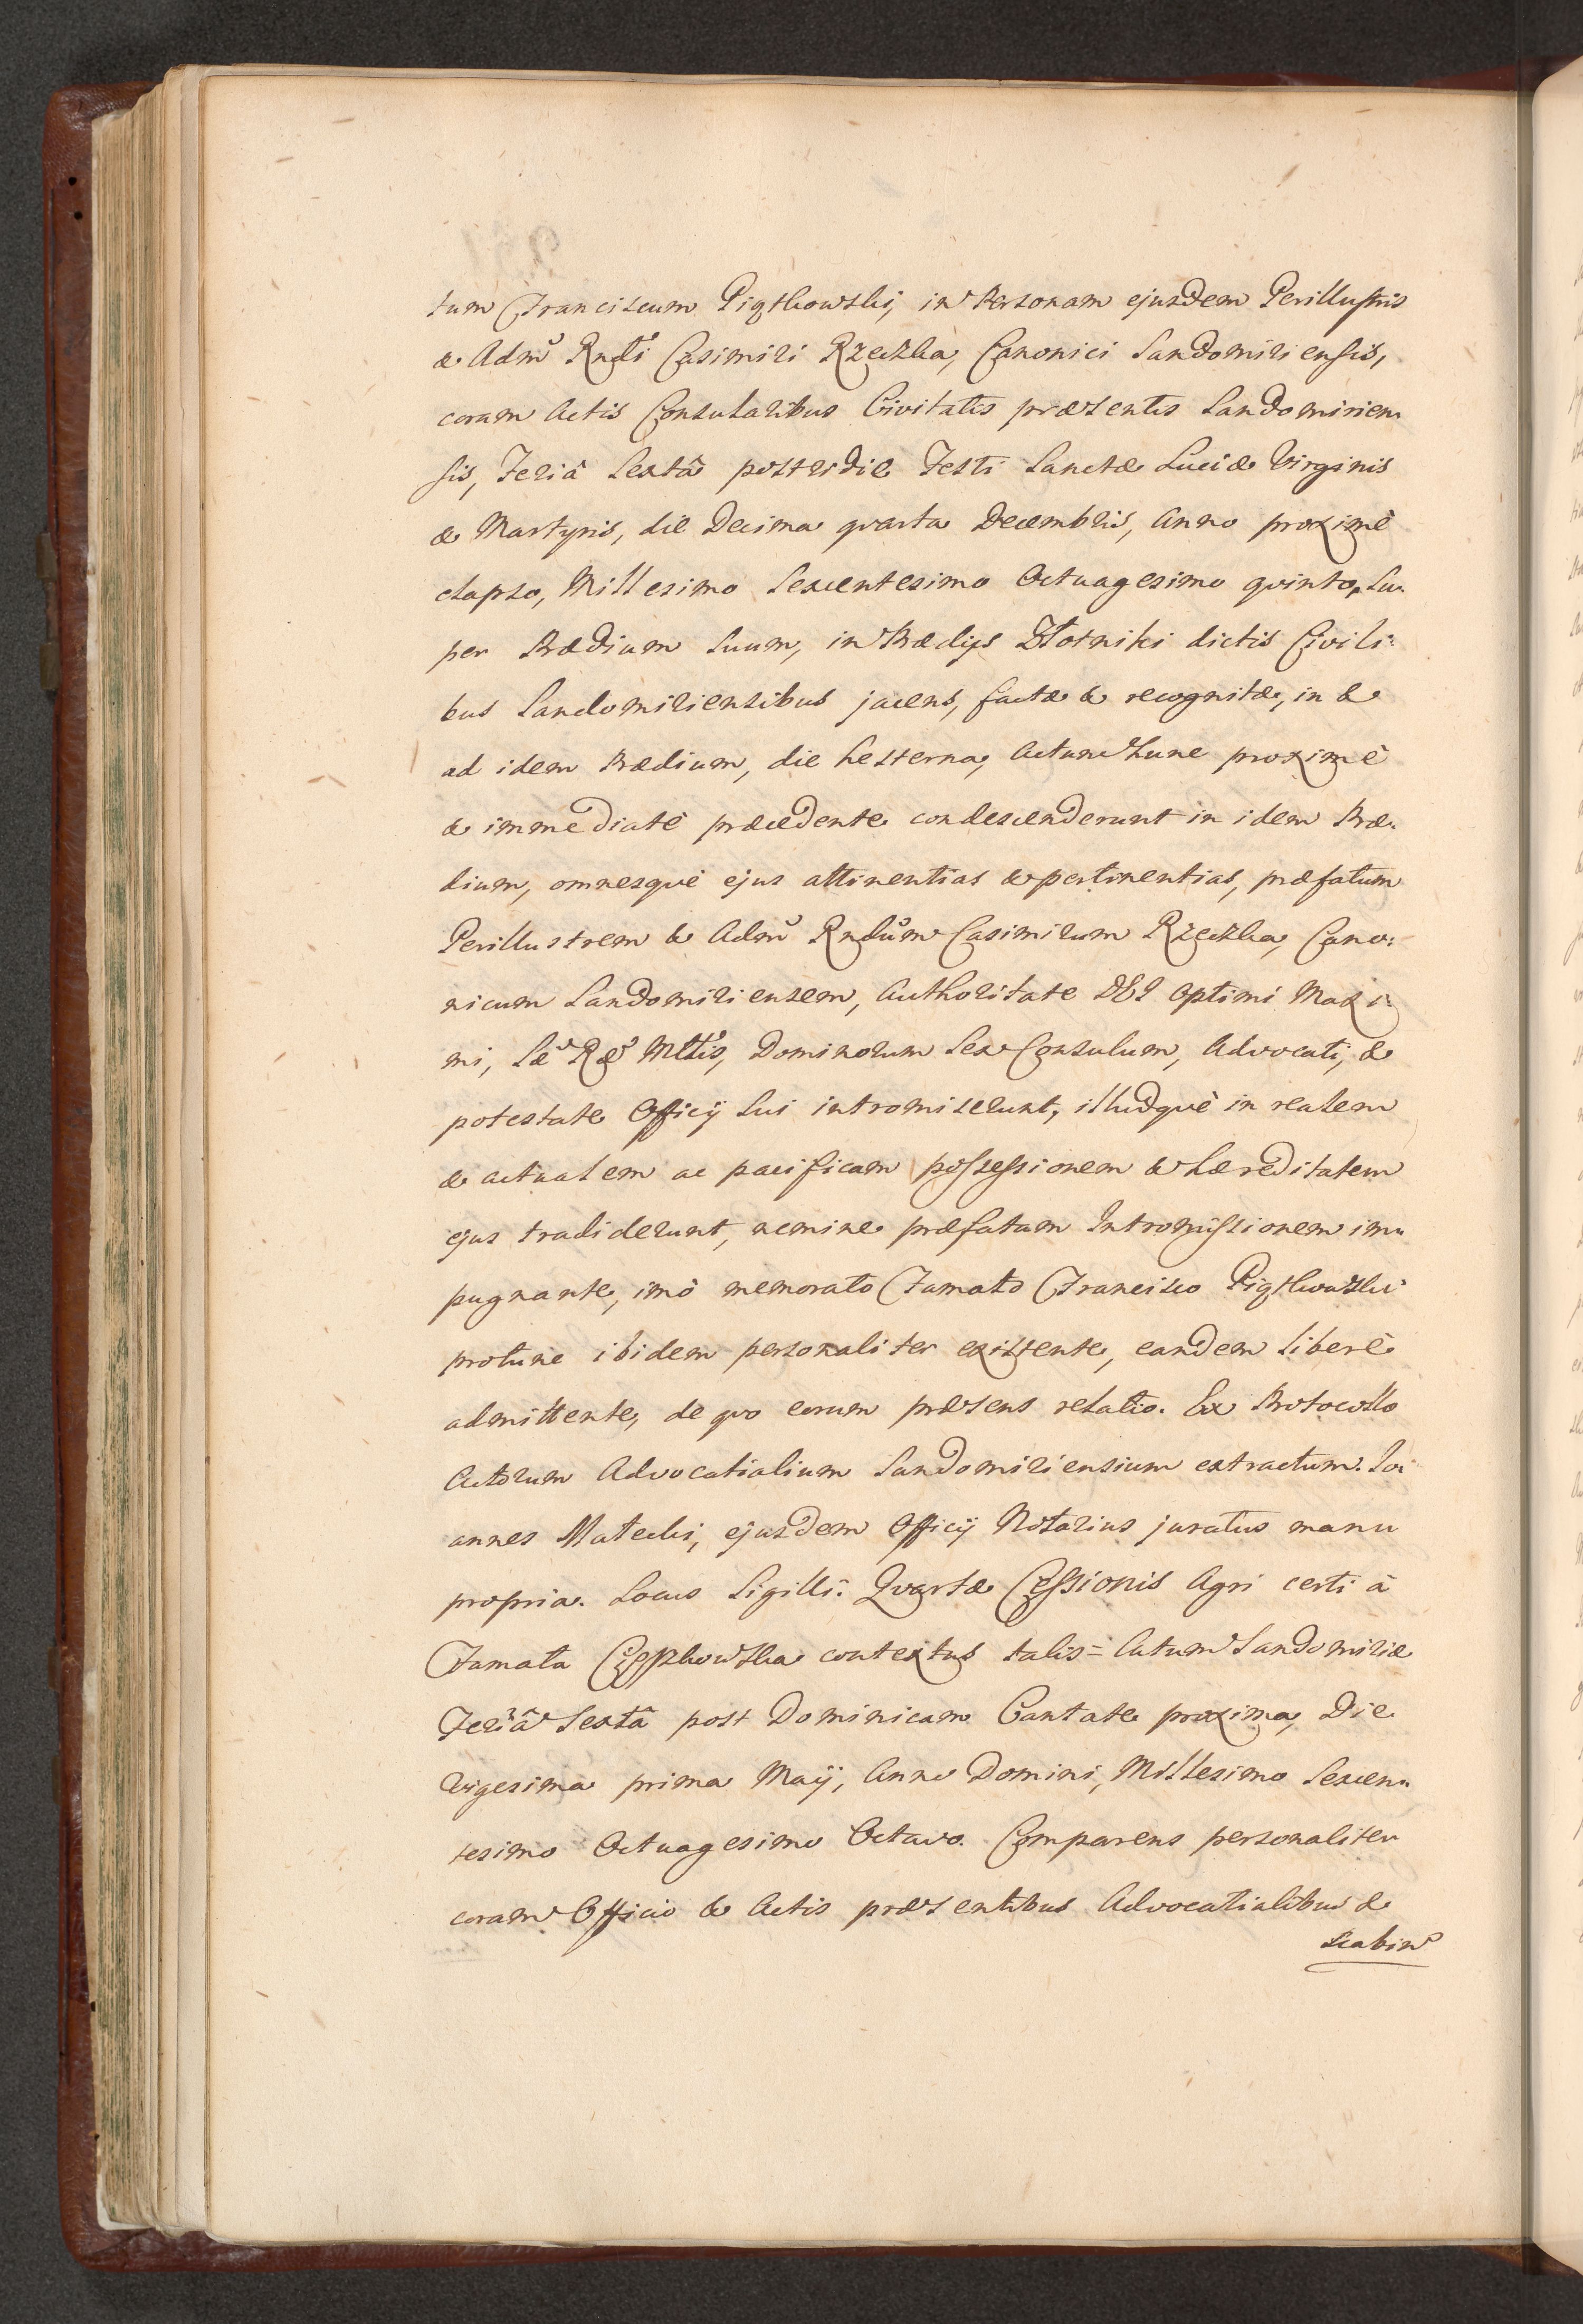 tum Franciscum Piątkowski, in Personam ejusdem Perillustris
& Adm̃ Rndi Casimiri Rzeczka, Canonici Sandomiriensis,
coram Actis Consularibus Civitatis præsentis Sandomirien-
sis, Feriâ Sextâ postridie Festi Sanctæ Luciæ Virginis
& Martyris, die Decima quarta Decembris, Anno proximè
elapso, Millesimo Sexcentesimo Octuagesimo quinto, Su-
per Prædium Suum, in Prædijs Złotniki dictis Civili-
bus Sandomiriensibus jacens, factæ & recognitæ, in &
ad idem Prædium, die hesterna, Actum hunc proximè
& immediatè præcedente condescenderunt in idem Præ-
dium, omnesquè ejus attinentias & pertinentias, præfatum
Perillustrem & Adm̃ Rndũm Casimirum Rzeczka, Cano-
nicum Sandomiriensem, Authoritate DEI Optimi Maxi-
mi, Sæ Ræ Mttis, Dominorum Sex Consulum, Advocati, &
potestate Officij Sui intromiserunt, illudquè in realem
& actualem ac pacificam possessionem & hæreditatem
ejus tradiderunt, nemine præfatam Intromissionem im-
pugnante, imò memorato Famato Francisco Piątkowski
protunc ibidem personaliter existente, eandem liberè
admittente, de quo eorum præsens relatio. Ex Protocollo
Actorum Advocatialium Sandomiriensium extractum. Jo-
annes Matecki, ejusdem Officij Notarius juratus manu
propria. Locus Sigilli. Quartæ Cessionis Agri certi à
Famata contextus talis = Actum Sandomiriæ
Feriâ Sextâ post Dominicam Cantate proxima, Die
Vigesima prima Maij, Anno Domini, Millesimo Sexcen-
tesimo Octuagesimo Octavo. Comparens personaliter
coram Officio & Actis præsentibus Advocatialibus &
Scabin